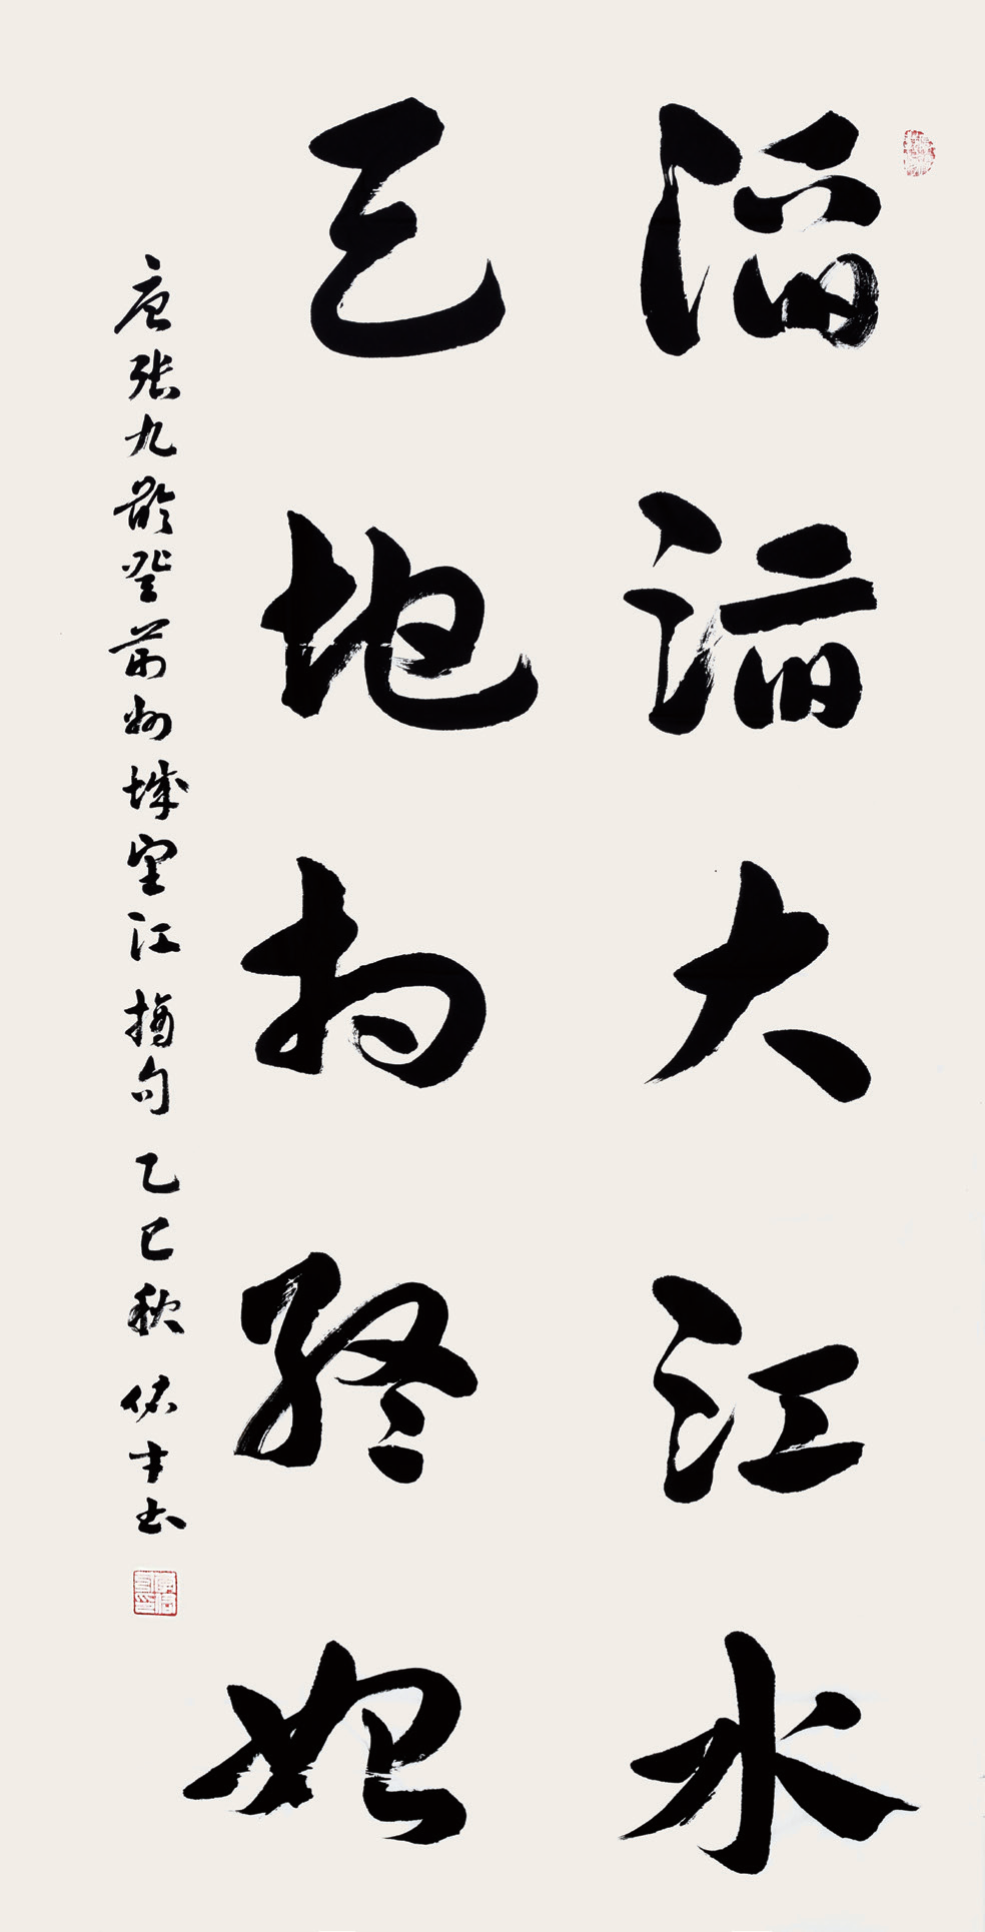 滔滔大江水
天地相终始
唐张九龄登荆州城望江摘句 乙巳秋 佑才书